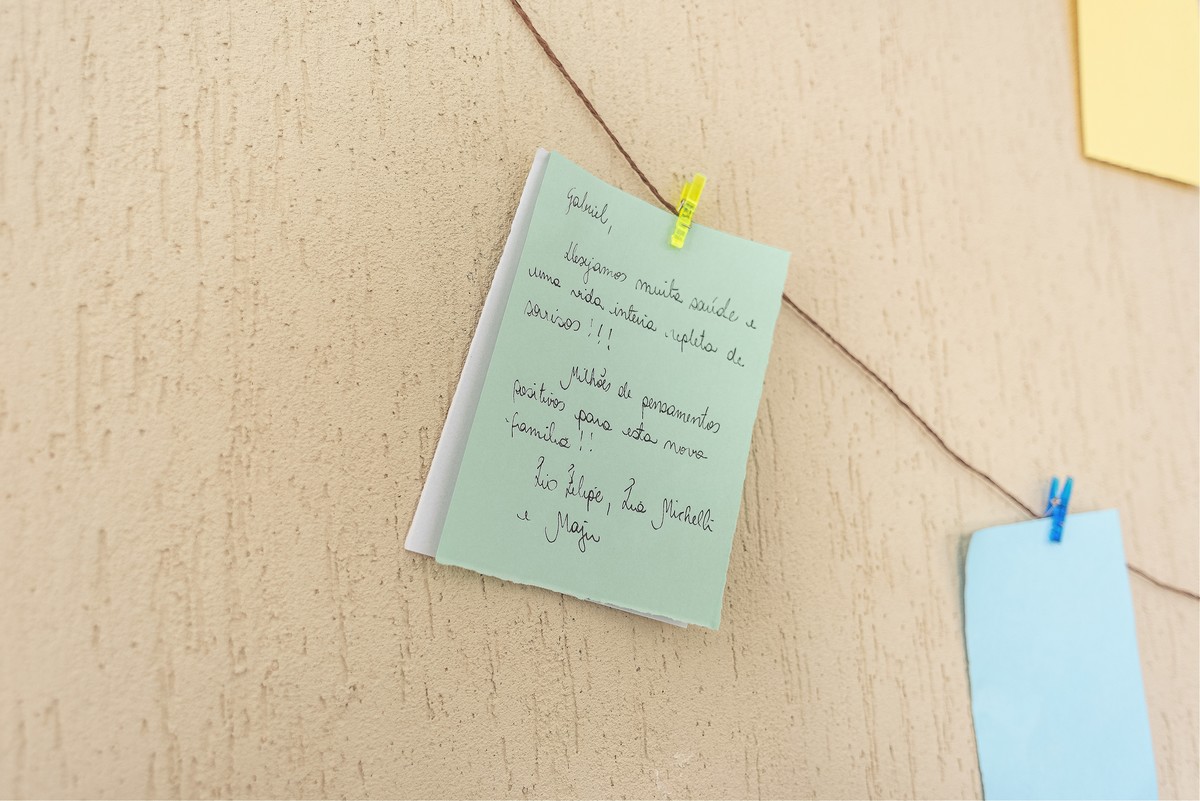 Gabriel,
Desejamos muita saúde e
uma vida inteira repleta de
sorrisos!!!
Milhões de pensamentos
positivos para esta nova
família!!
Luis Felipe, Lua Michelli
e Maju